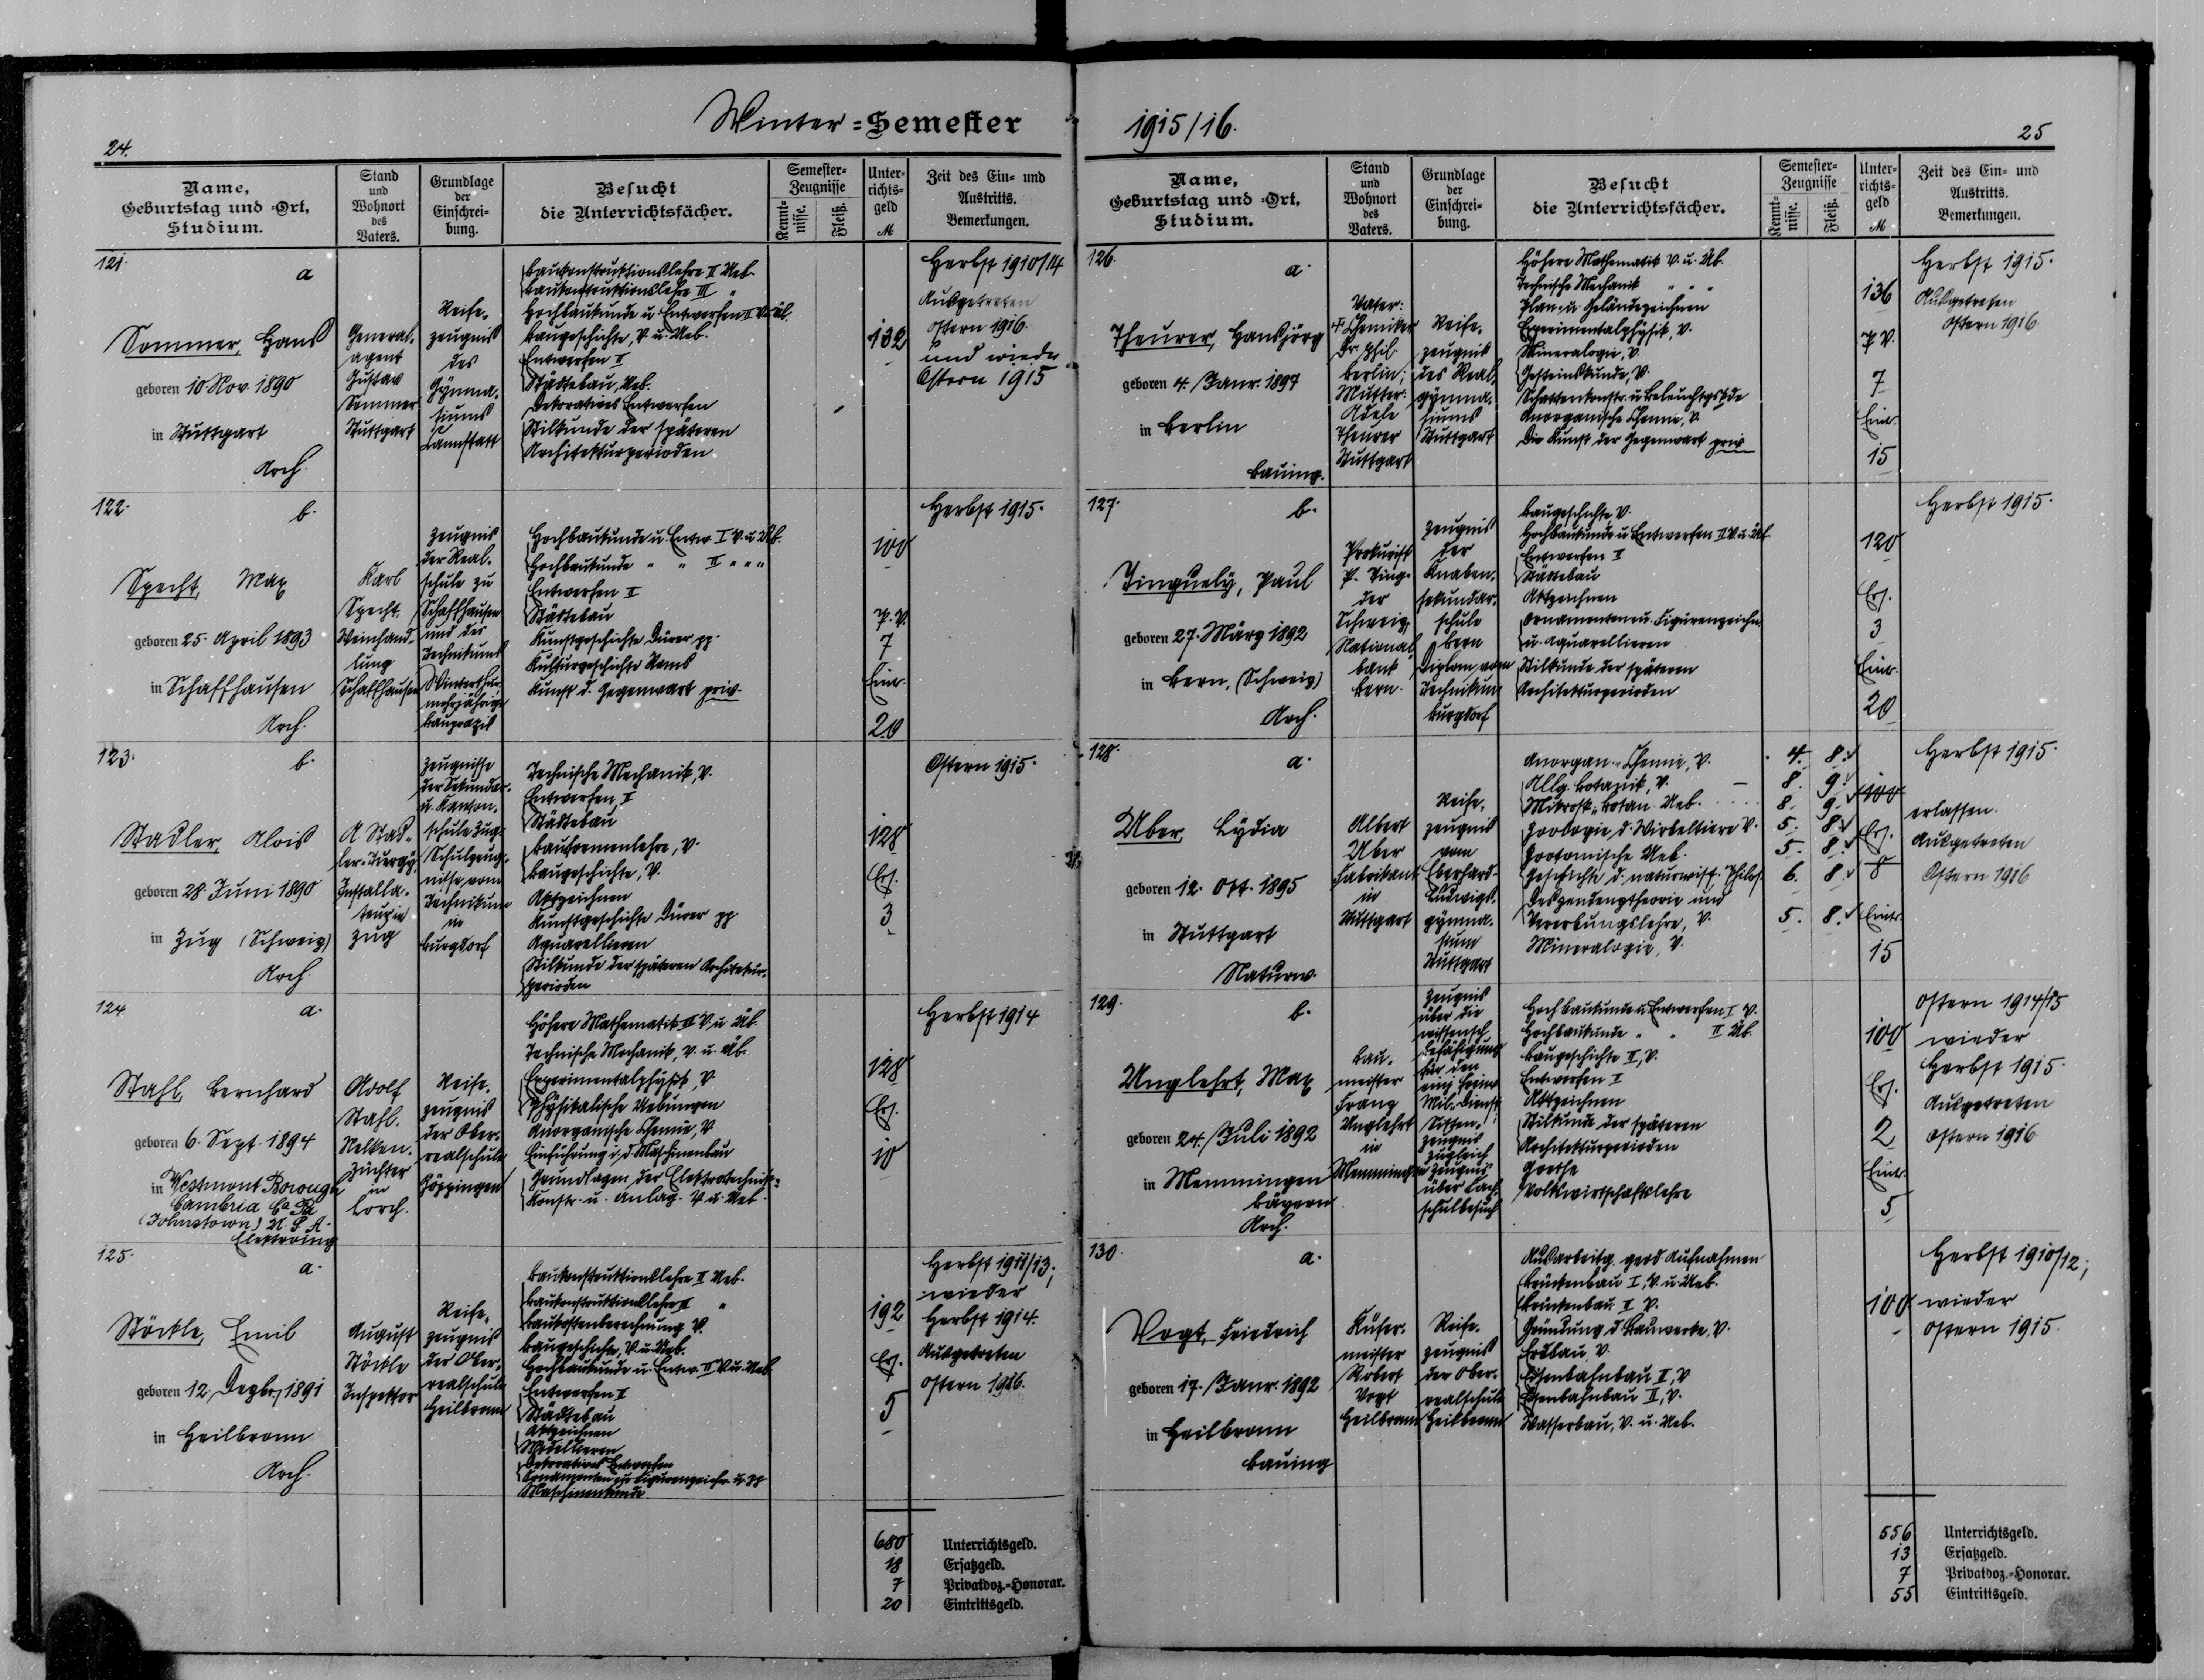 Winter-Semester
24.
Name,
Geburtstag und -Ort,
Studium.
Stand
und
Wohnort
des
Vaters.
Grundlage
der
Einschrei-
bung.
Besucht
die Unterrichtsfächer.
Semester-
Zeugnisse
Kennt-
nisse.
Fleiß.
Unter-
richts-
geld
M
Zeit des Ein- und
Austritts.
Bemerkungen.
121.
a
Sommer, Hans
geboren 10 Nov. 1890
in Stuttgart
Arch.
General-
agent
Gustav
Sommer
Stuttgart
Reife-
zeugnis
des
Gymna-
siums
Cannstatt
Baukonstruktionslehre II Ueb.
Baukonstruktionslehre III "
Hochbaukunde u. Entwerfen II V. u. Üb.
Baugeschichte, V. u. Ueb.
Entwerfen II
Städtebau, Ueb.
Dekoratives Entwerfen
Stilkunde der späteren
Architekturperioden
132
Herbst 1910/14
Ausgetreten
Ostern 1916.
und wieder
Ostern 1915
122.
b.
Specht, Max
geboren 25. April 1893
in Schaffhausen
Arch.
Karl
Specht,
Weinhand-
lung
Schaffhausen
Zeugnis
der Real-
schule zu
Schaffhausen
und des
Technikums
Winterthur
mehrjährige
Baupraxis
Hochbaukunde u. Entw. I V. u. Üb.
Hochbaukunde " " II " " "
Entwerfen II
Städtebau
Kunstgeschichte Dürer pp.
Kulturgeschichte Roms
Kunst d. Gegenwart priv.
100
P. V.
7
Eintr.
20
Herbst 1915.
123.
b.
Stadler, Alois
geboren 28 Juni 1890
in Zug (Schweiz)
Arch
A Stad-
Installa-
teur in
Zug
Zeugnisse
der Sekundar-
u. Kanton-
schule Zug
Schulzeug-
nisse vom
Technikum
in
Burgdorf
Technische Mechanik, V.
Entwerfen, I
Städtebau
Bauformenlehre, V.
Baugeschichte, V.
Aktzeichnen
Kunstgeschichte Dürer pp.
Aquarellieren
Stilkunde der späteren Architektur-
perioden
128
Ers.
3
Ostern 1915.
124
a.
Stahl, Bernhard
geboren 6. Sept. 1894
in Westmont Borough
Cambria Co Pa
(Johnstown) U. S. A.
Elektroing
Adolf
Stahl,
Nelken-
züchter
in
Lorch.
Reife-
zeugnis
der Ober-
realschule
Göppingen
Höhere Mathematik II V. u. Üb.
Technische Mechanik, V. u. Üb.
Experimentalphysik, V
Physikalische Uebungen
Anorganische Chemie, V
Einführung i. d. Maschinenbau
Grundlagen der Elektrotechnik-
Konstr. u. Anlag. V. u. Ueb.
128
Ers.
10
Herbst 1914
125.
a.
Stöckle, Emil
geboren 12. Dezbr. 1891
in Heilbronn
Arch.
August
Stöckle
Inspektor
Reife-
zeugnis
der Ober-
realschule
Heilbronn
Baukonstruktionslehre II Ueb.
Baukonstruktionslehre II "
Baukostenberechnung V.
Baugeschichte, V. u. Ueb.
Hochbaukunde u. Entw. II V. u. Ueb.
Entwerfen II
Städtebau
Aktzeichnen
Modellieren
Dekoratives Entwerfen
Maschinenkunde
192
Ers.
5
Herbst 1911/13;
wieder
Herbst 1914.
Ausgetreten
Ostern 1916.
680 Unterrichtsgeld.
18 Ersatzgeld.
7 Privatdoz.-Honorar.
20 Eintrittsgeld.
1915/16.
25
Name,
Geburtstag und -Ort,
Studium.
Stand
und
Wohnort
des
Vaters.
Grundlage
der
Einschrei-
bung.
Besucht
die Unterrichtsfächer.
Semester-
Zeugnisse
Kennt-
nisse.
Fleiß.
Unter-
richts-
geld
M
Zeit des Ein- und
Austritts.
Bemerkungen.
126.
a.
Theurer, Hansjörg
geboren 4. Janr. 1897
in Berlin
Bauing.
Vater:
† Chemiker
Dr. phil.
Berlin;
Mutter:
Adele
Theurer
Stuttgart
Reife-
zeugnis
des Real-
gymna-
siums
Stuttgart
Höhere Mathematik V. u. Üb.
Technische Mechanik " " "
Plan- u. Geländezeichnen
Experimentalphysik, V.
Mineralogie, V.
Gesteinskunde, V.
Schattenkonstr. u. Beleuchtgskde
Anorganische Chemie, V.
Die Kunst der Gegenwart priv
136
P. V.
7
Eintr.
15
Herbst 1915.
Ausgetreten
Ostern 1916
127.
b.
Tinguely, Paul
geboren 27. März 1892
in Bern, (Schweiz)
Arch.
Prokurist
P. Ting.
der
Schweiz.
National
bank
Bern.
Zeugnis
der
Knaben-
sekundar-
schule
Bern
Diplom vom
Technikum
Burgdorf
Baugeschichte V.
Hochbaukunde u. Entwerfen II V. u. Üb
Entwerfen II
Städtebau
Aktzeichnen
Ornamenten u. Figurenzeichn.
u. Aquarellieren
Stilkunde der späteren
Architekturperioden
120
Ers.
3
Eintr.
20
Herbst 1915.
128.
a.
Uber, Lydia
geboren 12. Okt. 1895
in Stuttgart
Naturw.
Albert
Uber
Fabrikant
in
Stuttgart
Reife-
zeugnis
vom
Eberhard-
Ludwigs-
gymna-
sium
Stuttgart
Anorgan. Chemie, V. 4. 8.
Allg. Botanik, V. 8. 9.
Mikrosk. botan. Ueb. 8. 9.
Zoologie, d. Wirbeltiere V. 5. 8.
Zootomische Ueb. 5. 8.
Geschichte d. naturwiss. Philos. 6. 8.
Deszendenztheorie und
Vererbungslehre, V. 5. 8.
Mineralogie, V.
100
Ers.
8
Eintr.
15
Herbst 1915.
erlassen.
Ausgetreten
Ostern 1916
129.
b.
Unglehrt, Max
geboren 24. Juli 1892
in Memmingen
Bayern
Arch.
Bau-
meister
Franz
Unglehrt
in
Memmingen
Zeugnis
über die
wissensch.
Befähigung
für den
Mil. Dienst
Sitten-
zeugnis
zugleich
Zeugnis
über Hoch-
schulbesuch
Hochbaukunde u. Entwerfen I V.
Hochbaukunde " " II Üb.
Baugeschichte II, V.
Entwerfen I
Aktzeichnen
Stilkunde der späteren
Architekturperioden
Goethe
Volkswirtschaftslehre
100
Ers.
2
Eintr.
5
Ostern 1914/15
wieder
Herbst 1915.
Ausgetreten
Ostern 1916.
130.
a.
Vogt, Friedrich
geboren 17. Janr. 1892
in Heilbronn
Bauing
Küfer-
meister
Robert
Vogt
Heilbronn
Reife-
zeugnis
der Ober-
realschule
Heilbronn
Ausarbeitg. geod. Aufnahmen
Brückenbau I, V. u. Ueb.
Brückenbau II V.
Gründung d. Bauwerke, V.
Erdbau, V.
Eisenbahnbau I, V
Eisenbahnbau II, V.
Wasserbau, V. u. Ueb.
100
Herbst 1910/12;
wieder
Ostern 1915.
556 Unterrichtsgeld.
13 Ersatzgeld.
7 Privatdoz.-Honorar.
55 Eintrittsgeld.